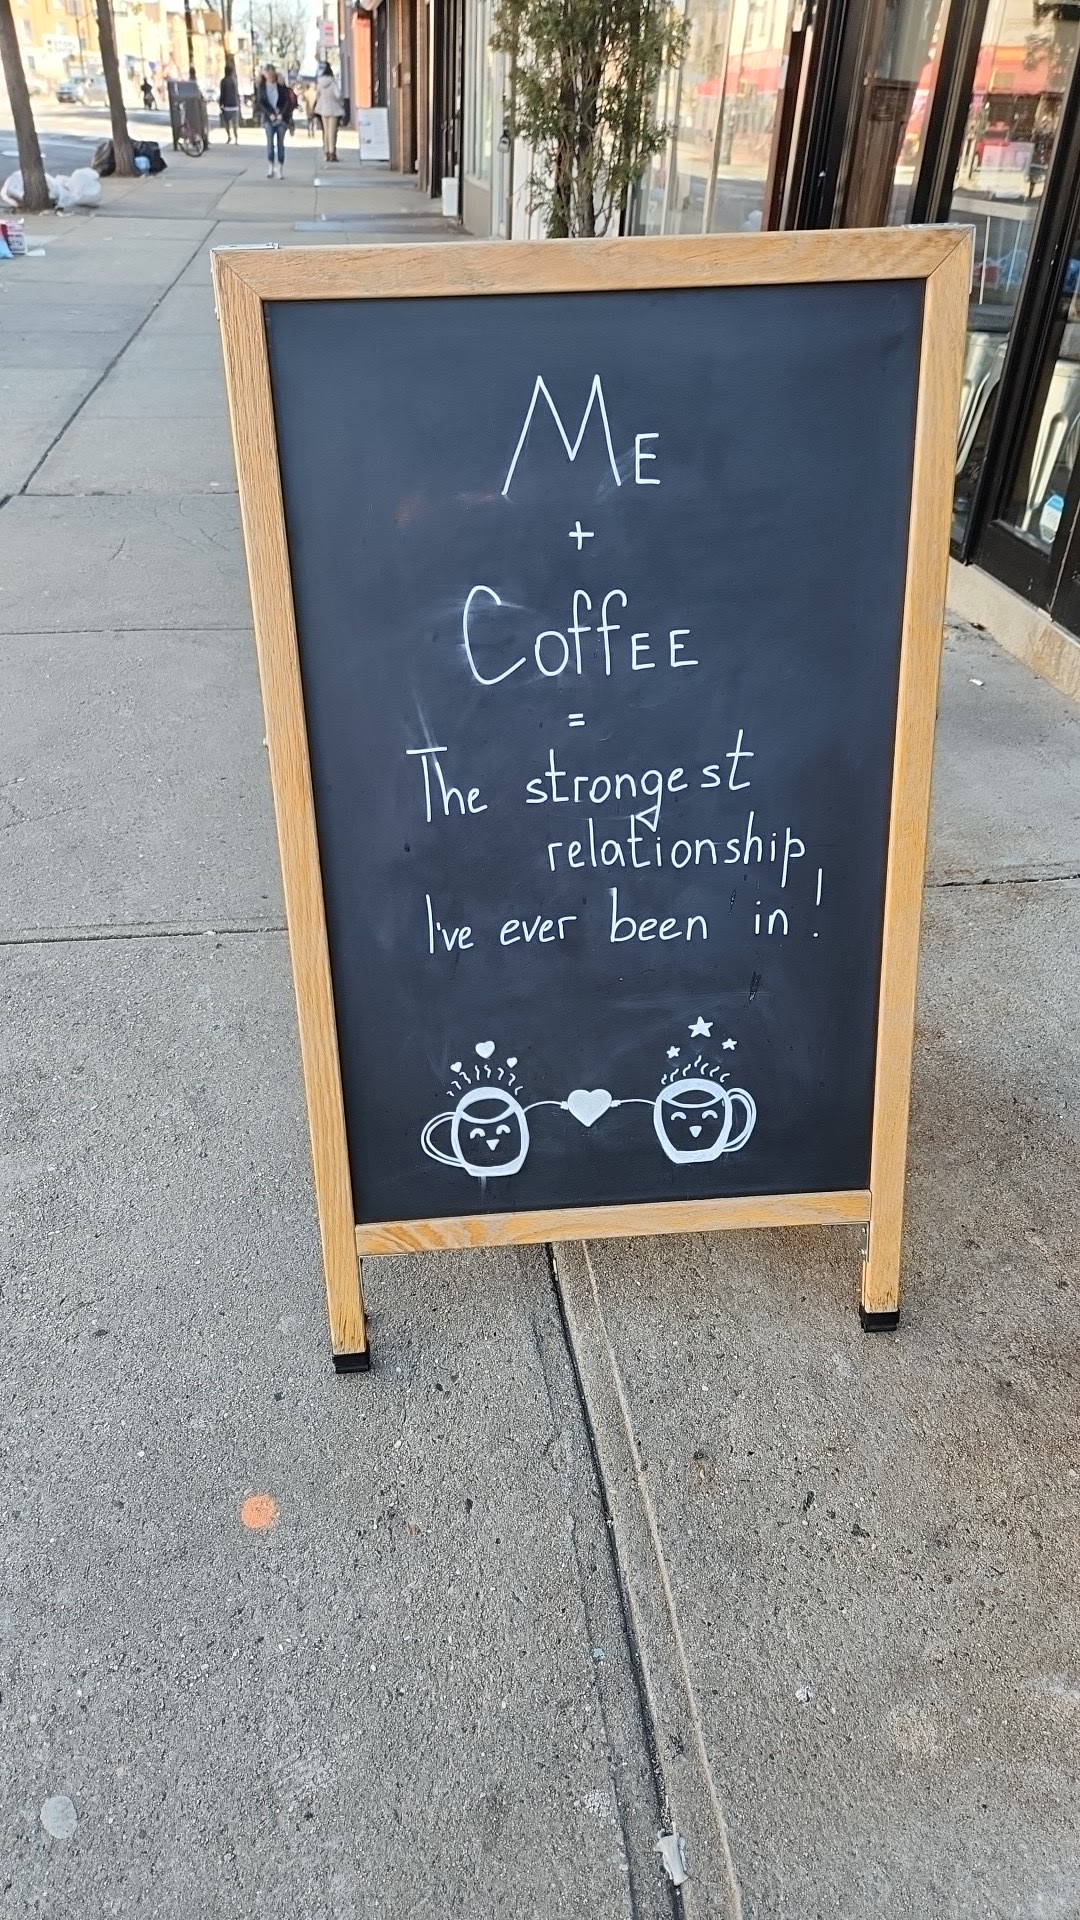 ME
+
CoffEE
=
The strongest
relationship
I've ever been in!